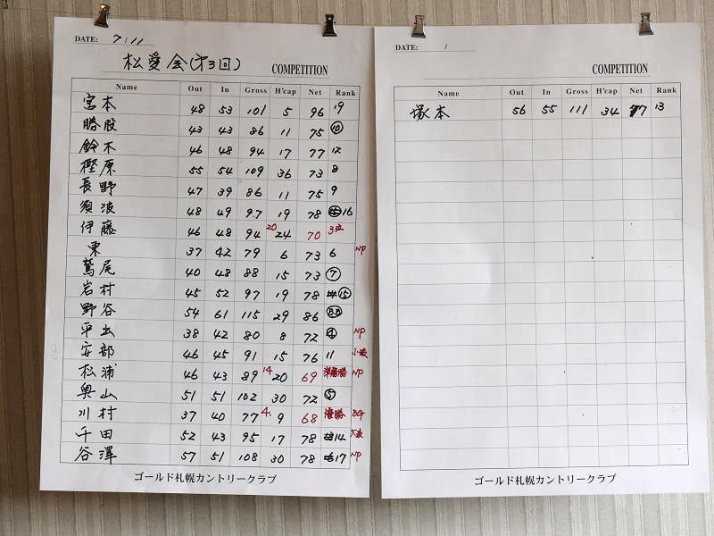 DATE: 7.11
松愛会(第3回) COMPETITION
Name Out In Gross H'cap Net Rank
宮本 48 53 101 5 96 19
勝股 43 43 86 11 75 ⑩
鈴木 46 48 94 17 77 12
樫原 55 54 109 36 73 8
長野 47 39 86 11 75 9
須波 48 49 97 19 78 16
伊藤 46 48 94 20 24 70 3位
東 37 42 79 6 73 6 NP
鷲尾 40 48 88 15 73 ⑦
岩村 45 52 97 19 78 ⑮
野谷 54 61 115 29 86
平出 38 42 80 8 72 ④ NP
安部 46 45 91 15 76 11
松浦 46 43 89 14 20 69 準優勝 NP
奥山 51 51 102 30 72 ⑤
川村 37 40 77 4 9 68 優勝 BG
千田 52 43 95 17 78 14
谷澤 57 51 108 30 78 17 NP
ゴールド札幌カントリークラブ
DATE: /
COMPETITION
Name Out In Gross H'cap Net Rank
塚本 56 55 111 34 77 13
ゴールド札幌カントリークラブ